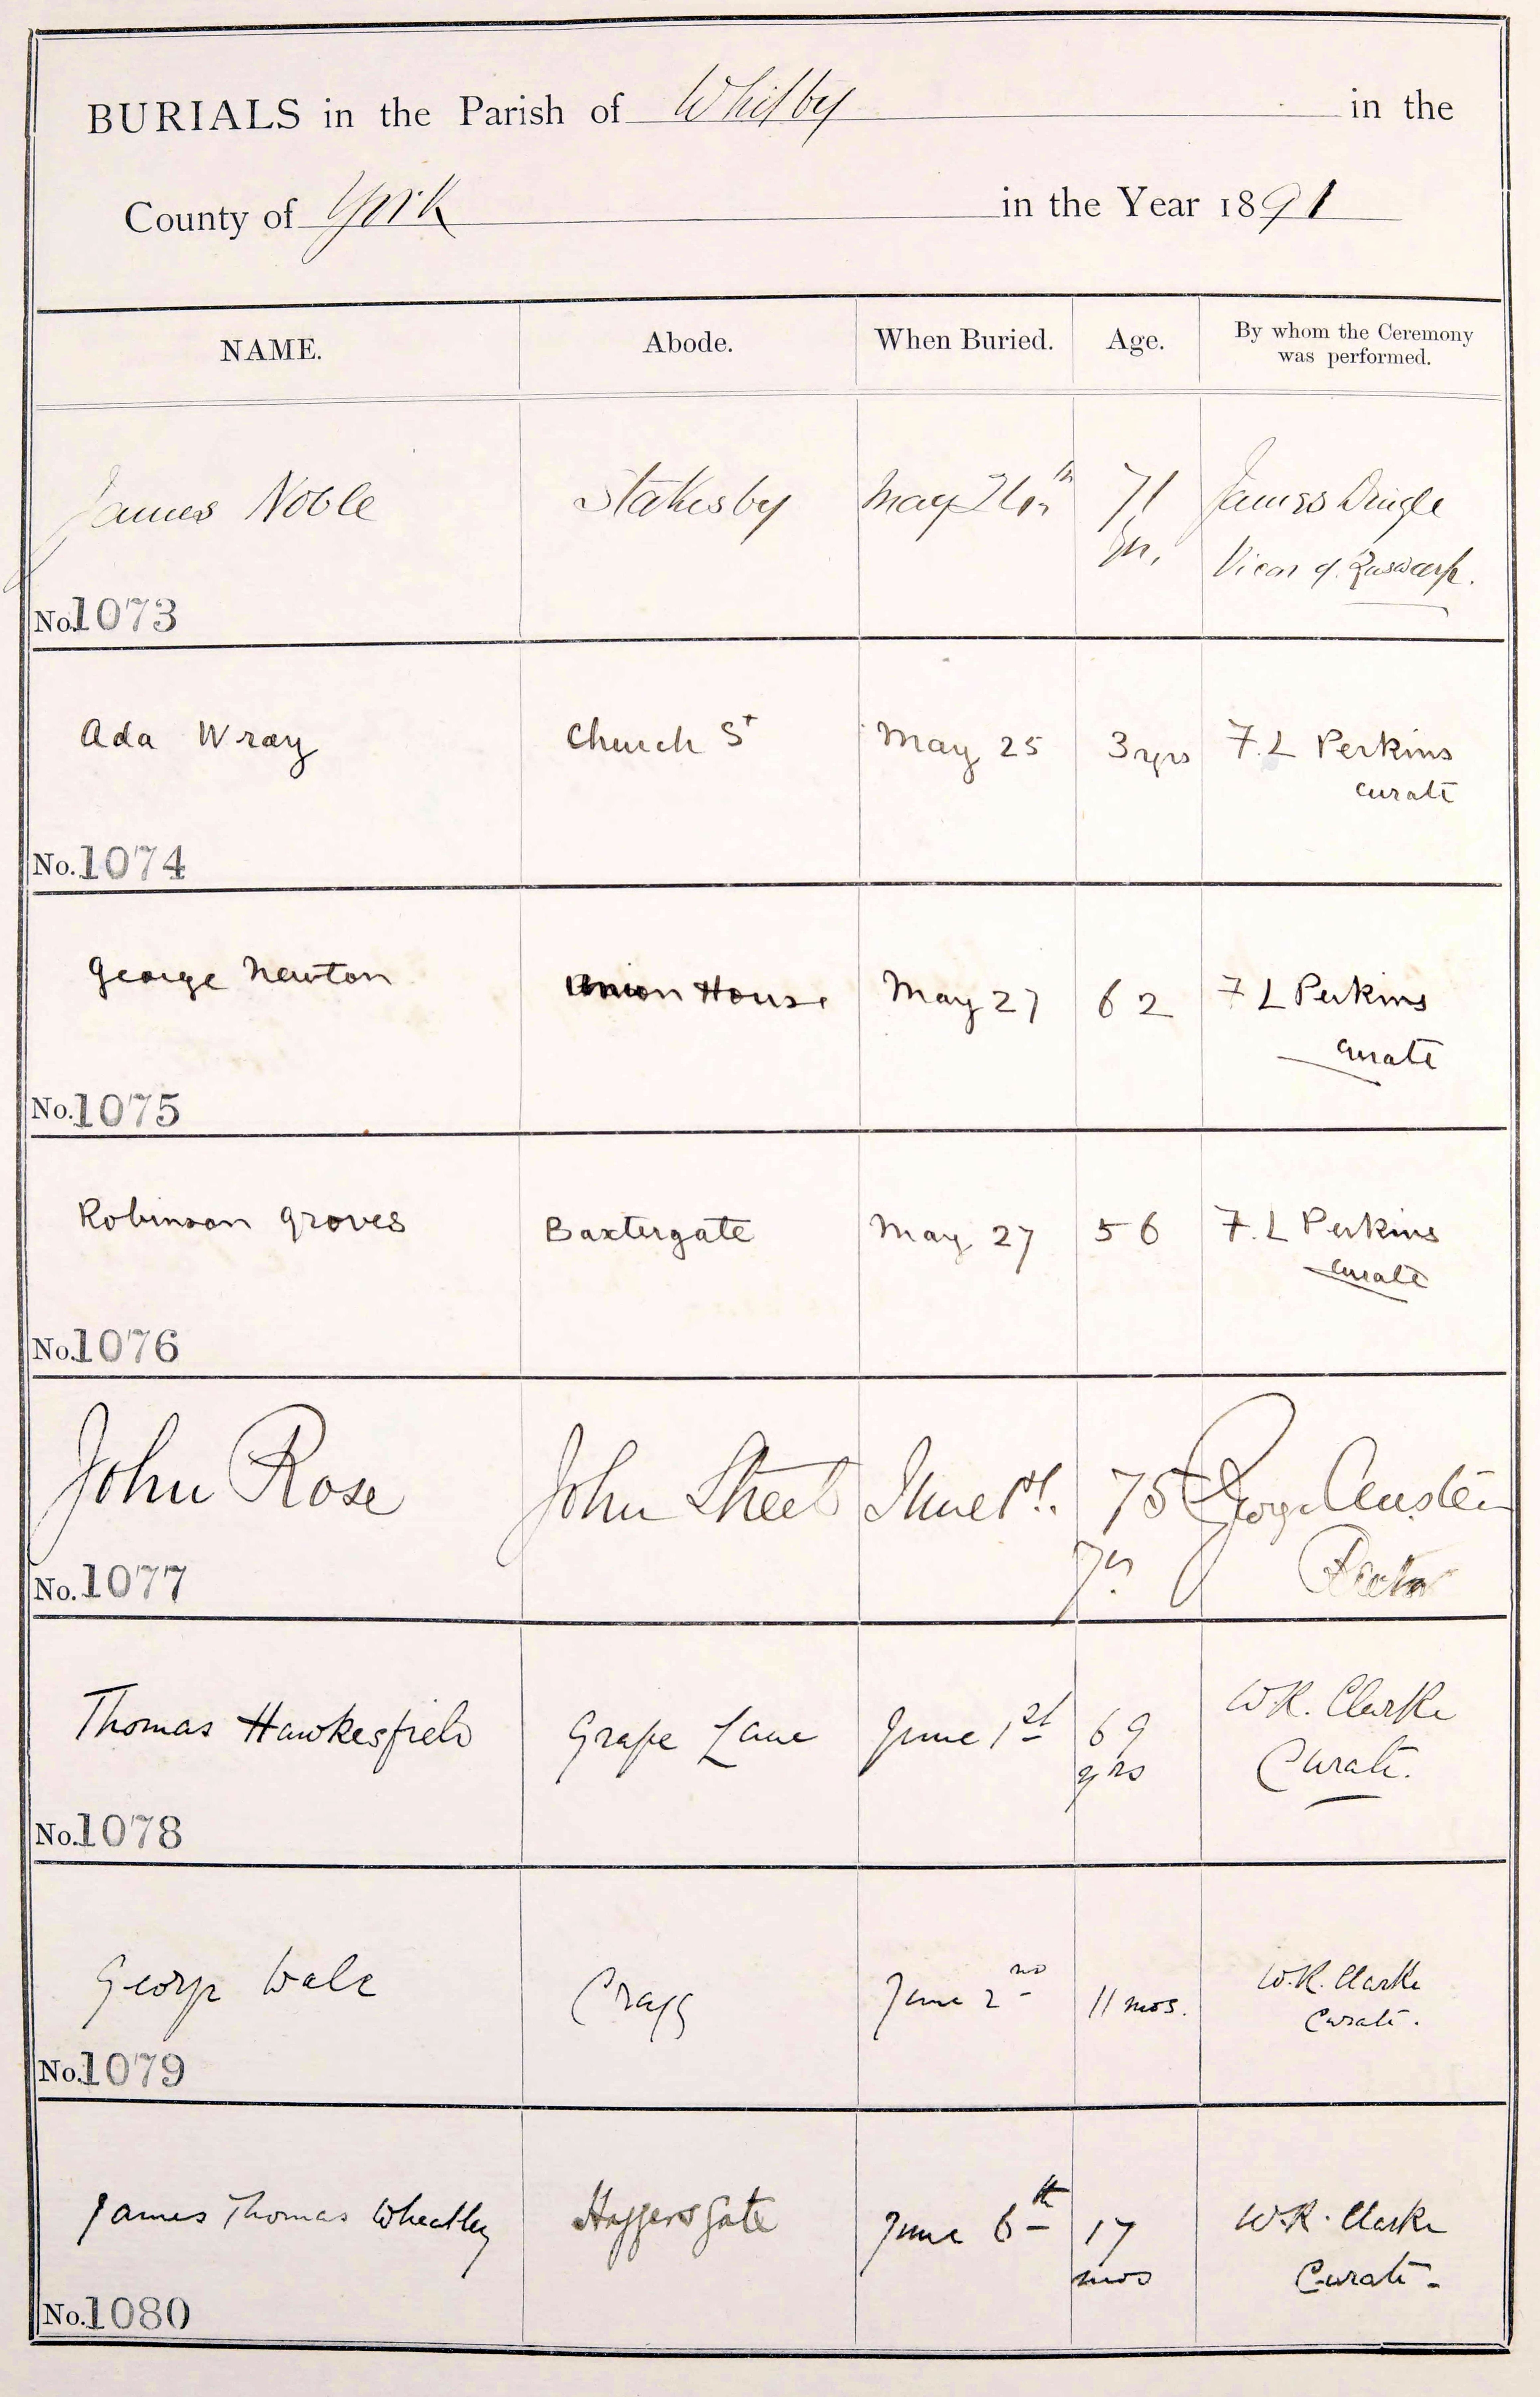 BURIALS in the Parish of Whitby in the
County of York in the Year 1891
NAME. Abode. When Buried. Age. By whom the Ceremony was performed.
James Noble Stakesby May 71 James Dingle
yrs. Vicar of Ruswarp.
No. 1073
Ada Wray Church St May 25 3 yrs F. L Perkins
curate
No. 1074
George Newton Union House May 27 62 F L Perkins
curate
No. 1075
Robinson Groves Baxtergate May 27 56 F. L Perkins
curate
No. 1076
John Rose John Street June 1st. 75 George Austen
yrs Rector
No. 1077
Thomas Hawkesfield Grape Lane June 1st 69 W.R. Clarke
yrs Curate.
No. 1078
George Wale Cragg June 2nd 11 mos. W.R. Clarke
Curate.
No. 1079
James Thomas Wheatley Haggersgate June 6th 17 W.R. Clarke
mos Curate.
No. 1080